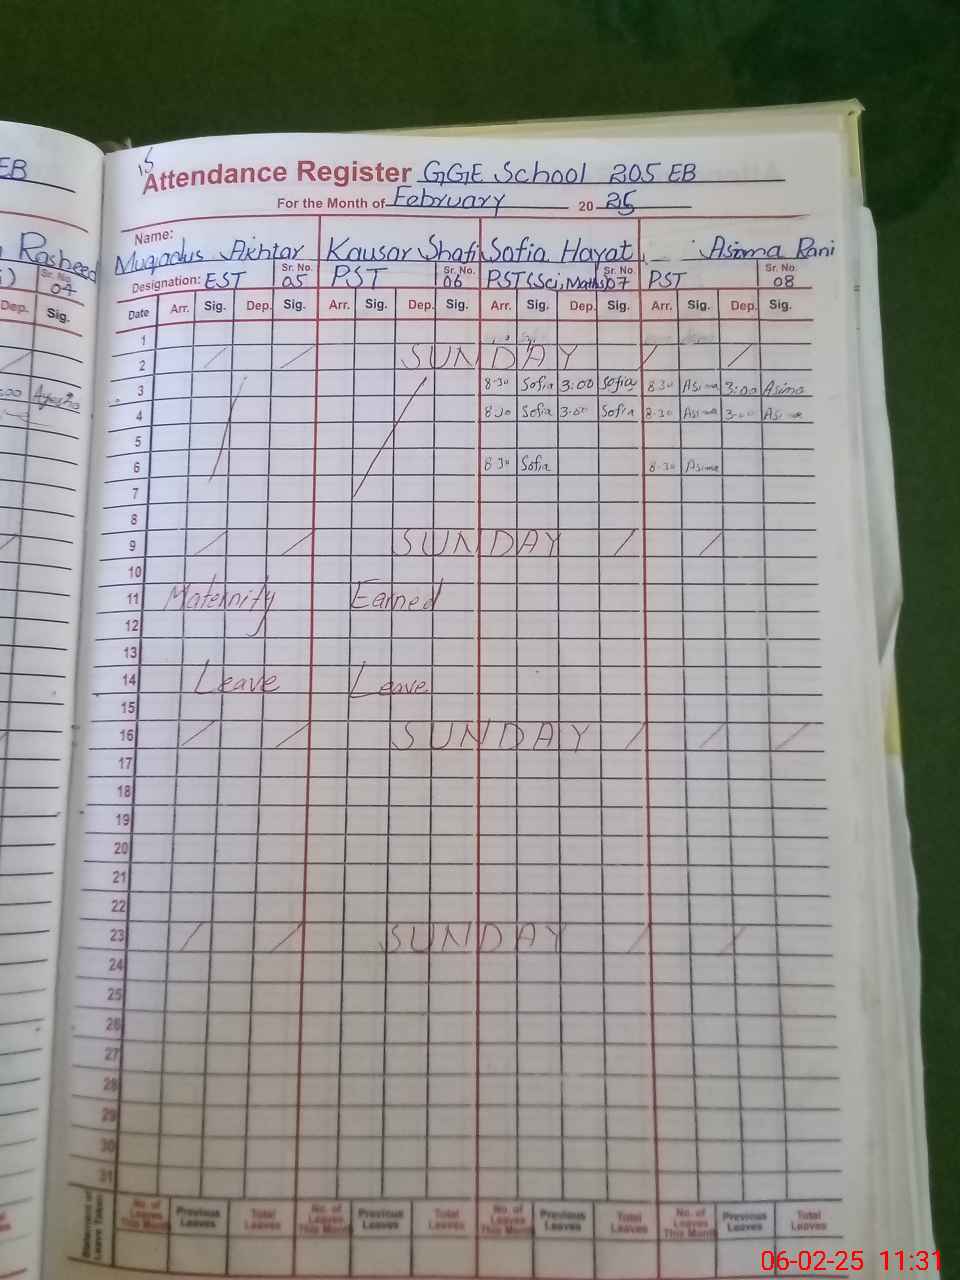 EB
Rasheed
Sr. No.
04
Dep. Sig.
Attendance Register GGE School 205 EB
For the Month of February 20 25
Name: Muqadus Akhtar Kausar Shafi Sofia Hayat Asima Rani
Designation: EST Sr. No. 05 PST Sr. No. 06 PST (Sci, Maths) Sr. No. 07 PST Sr. No. 08
Date Arr. Sig. Dep. Sig. Arr. Sig. Dep. Sig. Arr. Sig. Dep. Sig. Arr. Sig. Dep. Sig.
1
2 SUNDAY
3 8-30 Sofia 3:00 Sofia 8 30 Asima 3:00 Asima
4 8 30 Sofia 3-00 Sofia 8-30 Asima 3-00 Asima
5
6 8 30 Sofia 8-30 Asima
7
8
9 SUNDAY
10
11 Maternity Earned
12
13
14 Leave Leave
15
16 SUNDAY
17
18
19
20
21
22
23 SUNDAY
24
25
26
27
28
29
30
31
Statement of Leave Taken No. of Leaves This Month Previous Leaves Total Leaves No. of Leaves This Month Previous Leaves Total Leaves No. of Leaves This Month Previous Leaves Total Leaves No. of Leaves This Month Previous Leaves Total Leaves
06-02-25 11:31